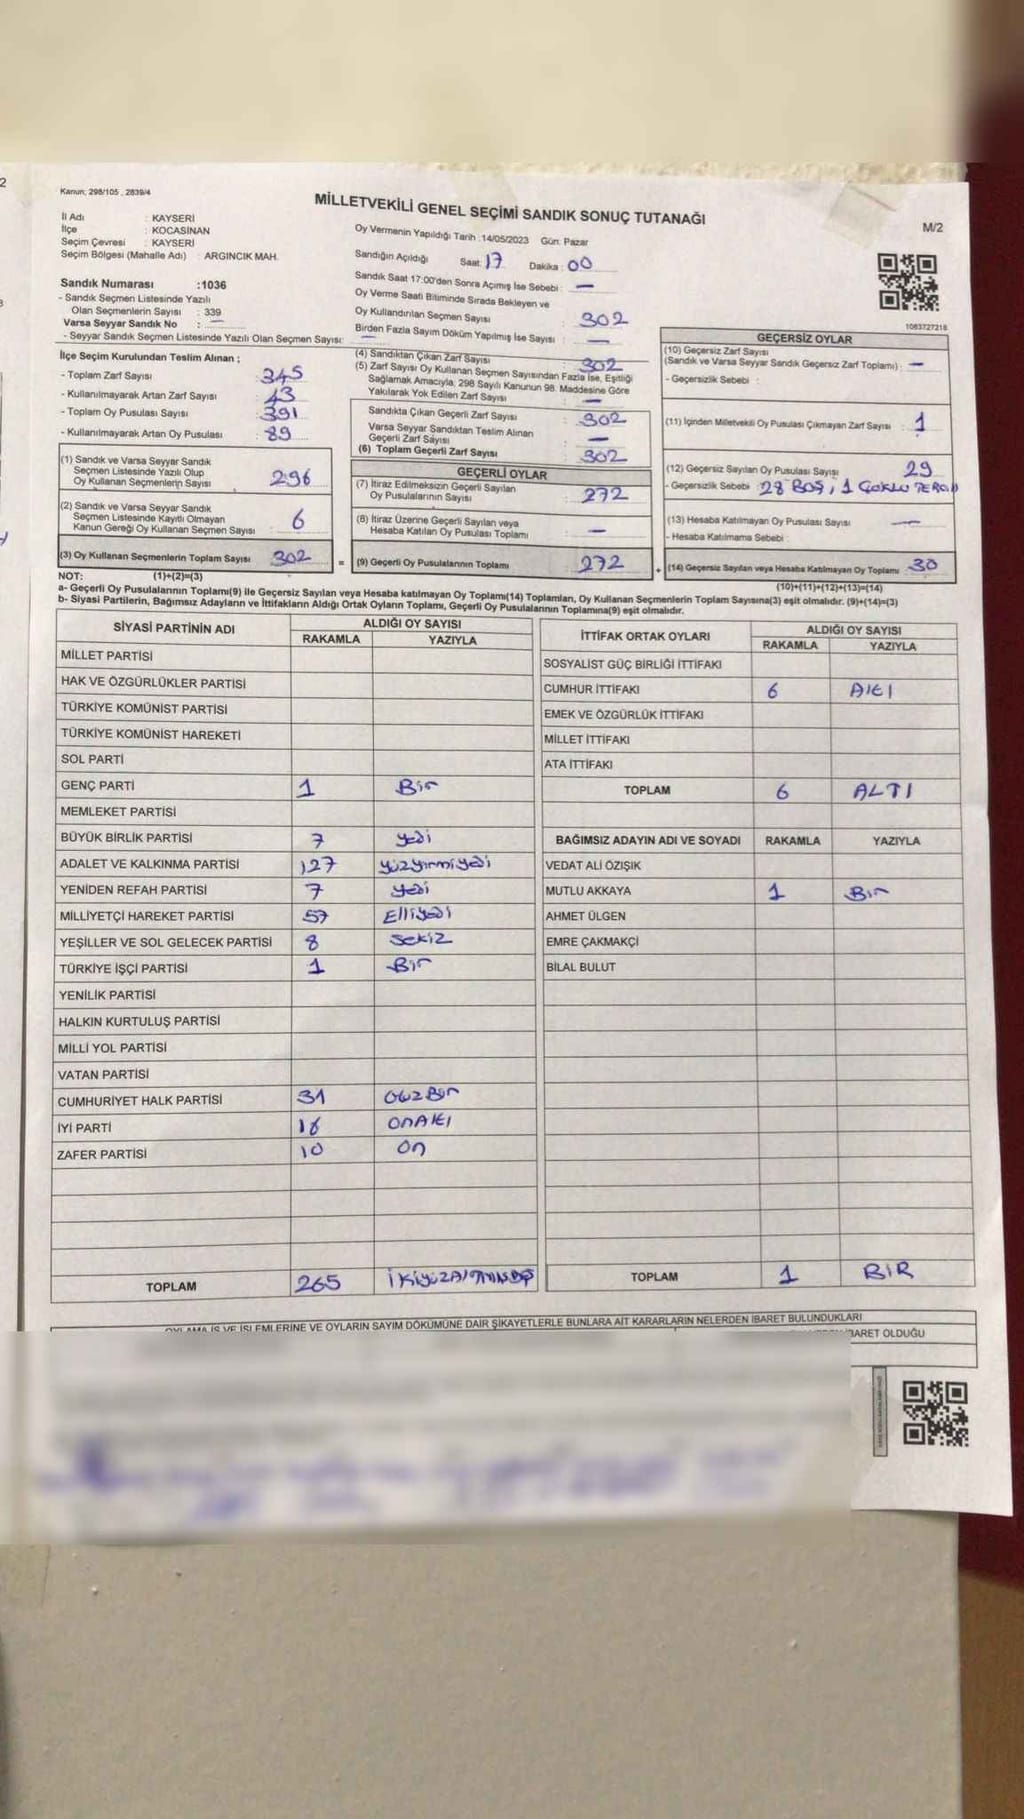 Kanun; 298/105 , 2839/4
MİLLETVEKİLİ GENEL SEÇİMİ SANDIK SONUÇ TUTANAĞI
M/2
İl Adı : KAYSERİ
İlçe : KOCASİNAN
Seçim Çevresi : KAYSERİ
Seçim Bölgesi (Mahalle Adı) : ARGINCIK MAH.
Sandık Numarası :1036
- Sandık Seçmen Listesinde Yazılı
Olan Seçmenlerin Sayısı : 339
Varsa Seyyar Sandık No : —
- Seyyar Sandık Seçmen Listesinde Yazılı Olan Seçmen Sayısı: —
Oy Vermenin Yapıldığı Tarih :14/05/2023 Gün: Pazar
Sandığın Açıldığı Saat: 17 Dakika : 00
Sandık Saat 17:00'den Sonra Açımış İse Sebebi : —
Oy Verme Saati Bitiminde Sırada Bekleyen ve
Oy Kullandırılan Seçmen Sayısı : 302
Birden Fazla Sayım Döküm Yapılmış İse Sayısı : —
1083727218
İlçe Seçim Kurulundan Teslim Alınan ;
- Toplam Zarf Sayısı : 345
- Kullanılmayarak Artan Zarf Sayısı : 43
- Toplam Oy Pusulası Sayısı : 391
- Kullanılmayarak Artan Oy Pusulası : 89
(1) Sandık ve Varsa Seyyar Sandık
Seçmen Listesinde Yazılı Olup
Oy Kullanan Seçmenlerin Sayısı : 296
(2) Sandık ve Varsa Seyyar Sandık
Seçmen Listesinde Kayıtlı Olmayan
Kanun Gereği Oy Kullanan Seçmen Sayısı : 6
(3) Oy Kullanan Seçmenlerin Toplam Sayısı : 302
(4) Sandıktan Çıkan Zarf Sayısı : 302
(5) Zarf Sayısı Oy Kullanan Seçmen Sayısından Fazla İse, Eşitliği
Sağlamak Amacıyla, 298 Sayılı Kanunun 98. Maddesine Göre
Yakılarak Yok Edilen Zarf Sayısı : —
Sandıkta Çıkan Geçerli Zarf Sayısı : 302
Varsa Seyyar Sandıktan Teslim Alınan
Geçerli Zarf Sayısı : —
(6) Toplam Geçerli Zarf Sayısı : 302
GEÇERLİ OYLAR
(7) İtiraz Edilmeksizin Geçerli Sayılan
Oy Pusulalarının Sayısı : 272
(8) İtiraz Üzerine Geçerli Sayılan veya
Hesaba Katılan Oy Pusulası Toplamı : —
= (9) Geçerli Oy Pusulalarının Toplamı : 272
GEÇERSİZ OYLAR
(10) Geçersiz Zarf Sayısı
(Sandık ve Varsa Seyyar Sandık Geçersiz Zarf Toplamı) : —
- Geçersizlik Sebebi :
(11) İçinden Milletvekili Oy Pusulası Çıkmayan Zarf Sayısı : 1
(12) Geçersiz Sayılan Oy Pusulası Sayısı : 29
- Geçersizlik Sebebi : 28 BOŞ, 1 ÇOKLU TERCİH
(13) Hesaba Katılmayan Oy Pusulası Sayısı : —
- Hesaba Katılmama Sebebi :
+ (14) Geçersiz Sayılan veya Hesaba Katılmayan Oy Toplamı : 30
NOT: (1)+(2)=(3) (10)+(11)+(12)+(13)=(14)
a- Geçerli Oy Pusulalarının Toplamı(9) ile Geçersiz Sayılan veya Hesaba katılmayan Oy Toplamı(14) Toplamları, Oy Kullanan Seçmenlerin Toplam Sayısına(3) eşit olmalıdır. (9)+(14)=(3)
b- Siyasi Partilerin, Bağımsız Adayların ve İttifakların Aldığı Ortak Oyların Toplamı, Geçerli Oy Pusulalarının Toplamına(9) eşit olmalıdır.
SİYASİ PARTİNİN ADI ALDIĞI OY SAYISI
RAKAMLA YAZIYLA
MİLLET PARTİSİ
HAK VE ÖZGÜRLÜKLER PARTİSİ
TÜRKİYE KOMÜNİST PARTİSİ
TÜRKİYE KOMÜNİST HAREKETİ
SOL PARTİ
GENÇ PARTİ 1 Bir
MEMLEKET PARTİSİ
BÜYÜK BİRLİK PARTİSİ 7 yedi
ADALET VE KALKINMA PARTİSİ 127 yüzyirmiyedi
YENİDEN REFAH PARTİSİ 7 yedi
MİLLİYETÇİ HAREKET PARTİSİ 57 Elliyedi
YEŞİLLER VE SOL GELECEK PARTİSİ 8 Sekiz
TÜRKİYE İŞÇİ PARTİSİ 1 Bir
YENİLİK PARTİSİ
HALKIN KURTULUŞ PARTİSİ
MİLLİ YOL PARTİSİ
VATAN PARTİSİ
CUMHURİYET HALK PARTİSİ 31 Otuz Bir
İYİ PARTİ 16 onAltı
ZAFER PARTİSİ 10 On
TOPLAM 265 İkiyüzAltmışBeş
İTTİFAK ORTAK OYLARI ALDIĞI OY SAYISI
RAKAMLA YAZIYLA
SOSYALİST GÜÇ BİRLİĞİ İTTİFAKI
CUMHUR İTTİFAKI 6 Altı
EMEK VE ÖZGÜRLÜK İTTİFAKI
MİLLET İTTİFAKI
ATA İTTİFAKI
TOPLAM 6 ALTI
BAĞIMSIZ ADAYIN ADI VE SOYADI RAKAMLA YAZIYLA
VEDAT ALİ ÖZIŞIK
MUTLU AKKAYA 1 Bir
AHMET ÜLGEN
EMRE ÇAKMAKÇİ
BİLAL BULUT
TOPLAM 1 BİR
OYLAMA İŞ VE İŞLEMLERİNE VE OYLARIN SAYIM DÖKÜMÜNE DAİR ŞİKAYETLERLE BUNLARA AİT KARARLARIN NELERDEN İBARET BULUNDUKLARI
İBARET OLDUĞU